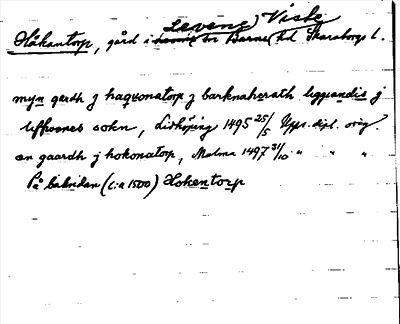 Levene, Viste
Håkantorp, gård i sn Barne hd Skaraborgs l.
myn gardh j haquonatorp j barknahæradh liggiandis j
sokn, Lidköping 1495 25/5 Upps. dipl. orig.
en gaardh j hokonatorp, Malma 1497 31/10 " " "
På baksidan (c:a 1500) Hokentorp